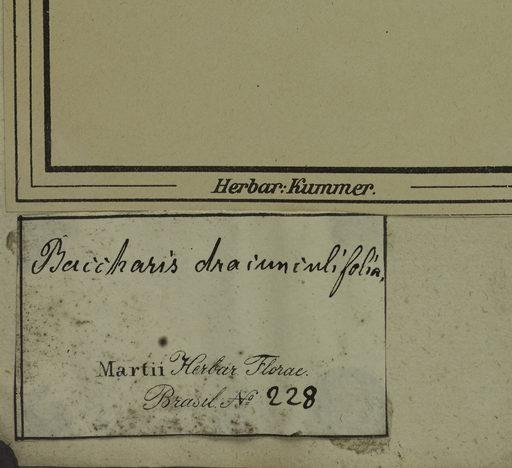 Herbar: Kummer.
Baccharis dracunculifolia,
Martii Herbar Florae.
Brasil. No 228